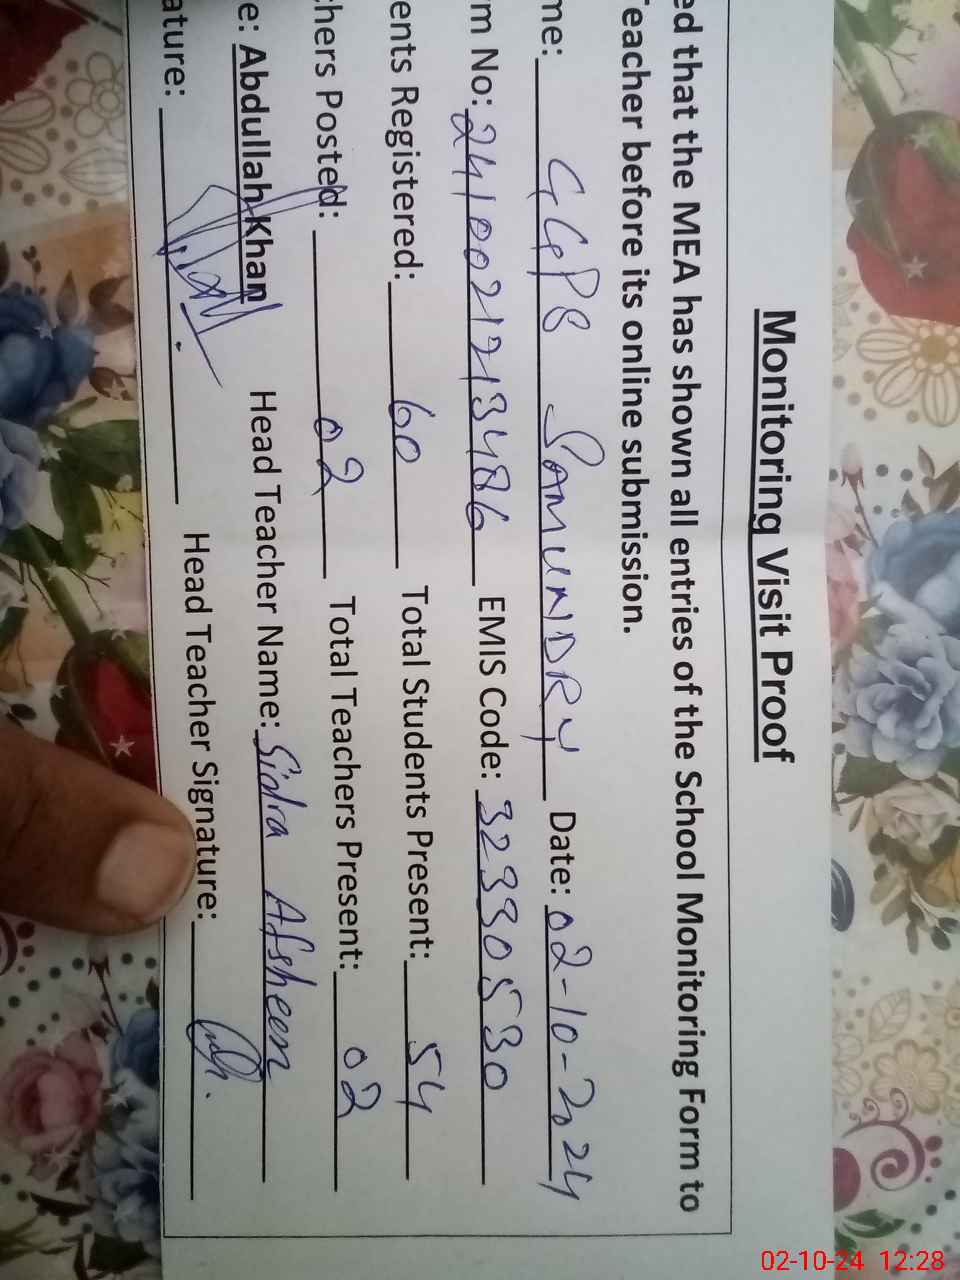 Monitoring Visit Proof
ed that the MEA has shown all entries of the School Monitoring Form to
Teacher before its online submission.
me: GGPS SAMUNDRY Date: 02-10-2024
m No: 2410021213486 EMIS Code: 32330530
ents Registered: 60 Total Students Present: 54
chers Posted: 02 Total Teachers Present: 02
e: Abdullah Khan Head Teacher Name: Sidra Afsheen
ature: Head Teacher Signature:
02-10-24 12:28